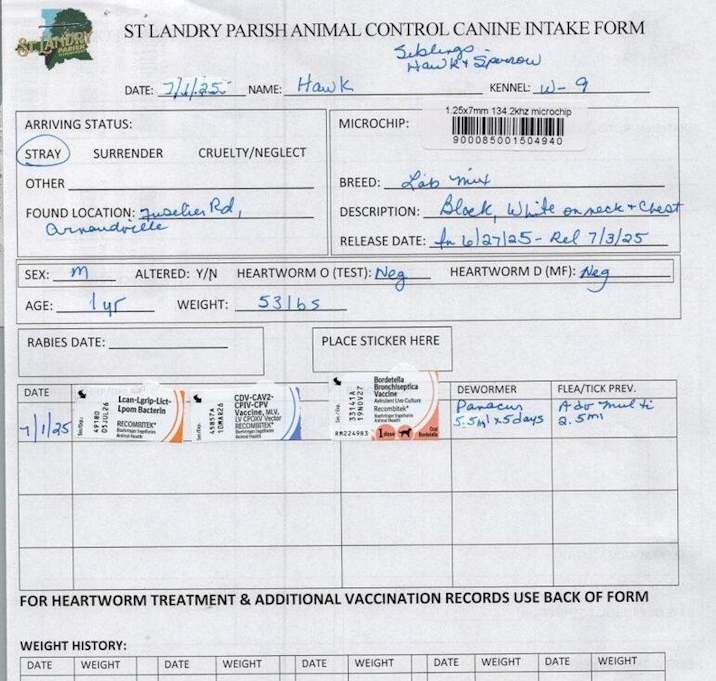 ST LANDRY PARISH
ST LANDRY PARISH ANIMAL CONTROL CANINE INTAKE FORM
Siblings -
Hawk + Sparrow
DATE: 7/1/25 NAME: Hawk KENNEL: W-9
ARRIVING STATUS:
STRAY SURRENDER CRUELTY/NEGLECT
OTHER
FOUND LOCATION: Fuselier Rd,
Arnaudville
MICROCHIP:
1.25x7mm 134.2khz microchip
900085001504940
BREED: Lab mix
DESCRIPTION: Black, White on neck + Chest
RELEASE DATE: In 6/27/25 - Rel 7/3/25
SEX: M ALTERED: Y/N HEARTWORM O (TEST): Neg HEARTWORM D (MF): Neg
AGE: 1 yr WEIGHT: 53 lbs
RABIES DATE:
PLACE STICKER HERE
DATE DEWORMER FLEA/TICK PREV.
7/1/25
Lcan-Lgrip-Lict-
Lpom Bacterin
RECOMBITEK
Boehringer Ingelheim
Animal Health
49180
05JUL26
CDV-CAV2-
CPIV-CPV
Vaccine, MLV,
LV CPOXV Vector
RECOMBITEK
Boehringer Ingelheim
Animal Health
45857A
10MAR26
Bordetella
Bronchiseptica
Vaccine
Avirulent Live Culture
Recombitek
Boehringer Ingelheim
Animal Health
33141A
19NOV27
RM224983
1 dose
Oral
Bordetella
Panacur
5.5ml x 5days
Advo multi
2.5ml
FOR HEARTWORM TREATMENT & ADDITIONAL VACCINATION RECORDS USE BACK OF FORM
WEIGHT HISTORY:
DATE WEIGHT DATE WEIGHT DATE WEIGHT DATE WEIGHT DATE WEIGHT